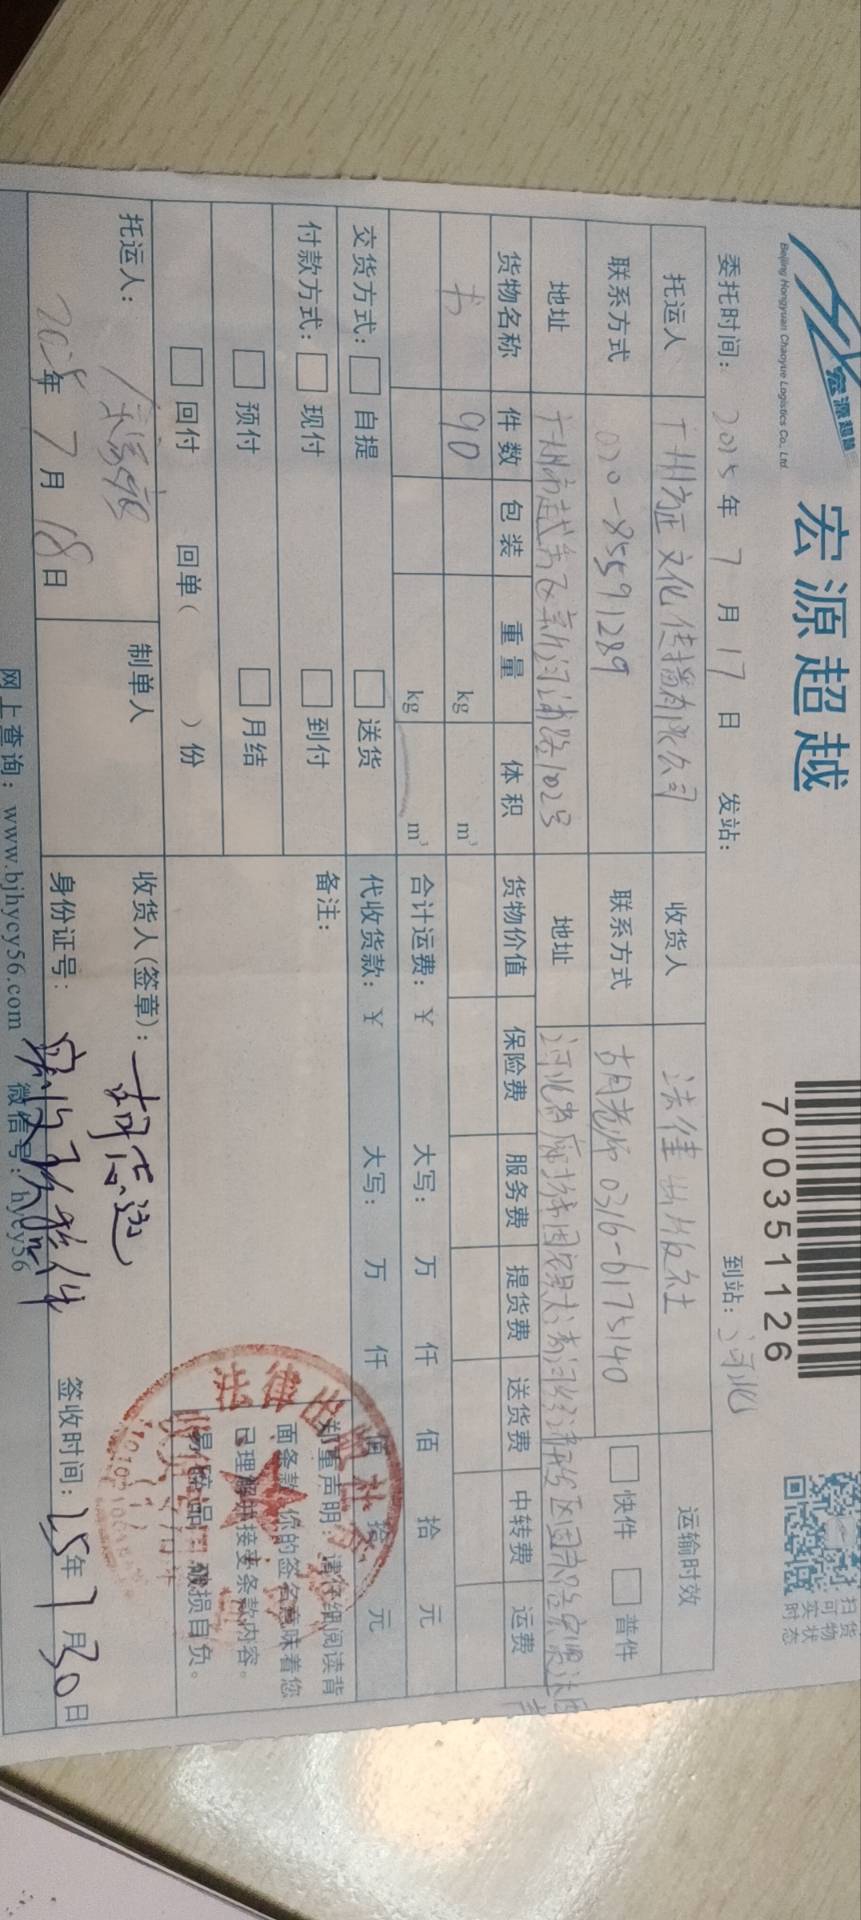 宏源超越
Beijing Hongyuan Chaoyue Logistics Co., Ltd.
宏源超越
7003511​26
扫货
可物
实状
时态
委托时间：2025年7月17日 发站： 到站：河北
托运人 广州方正文化传播有限公司 收货人 法律出版社 运输时效
联系方式 020-85591289 联系方式 胡老师 0316-6175140 快件 普件
地址 广州市越秀区 1023 地址 河北省廊坊市固安县大清河经济开发区
货物名称 件数 包装 重量 体积 货物价值 保险费 服务费 提货费 送货费 中转费 运费
书 90 kg m³
kg m³ 合计运费：¥ 大写： 万 仟 佰 拾 元
交货方式： 自提 送货 代收货款：¥ 大写： 万 仟 佰 拾 元
付款方式： 现付 到付 备注：
预付 月结
回付 回单（ ）份
郑重声明：请仔细阅读背
面条款，你的签名意味着您
已理解并接受条款内容。
易碎品 破损自负。
法律出版社
托运人： 制单人 收货人(签章)：胡志远
2025年7月18日 身份证号： 签收时间：25年7月30日
网上查询：www.bjhycy56.com 微信号：hycy56